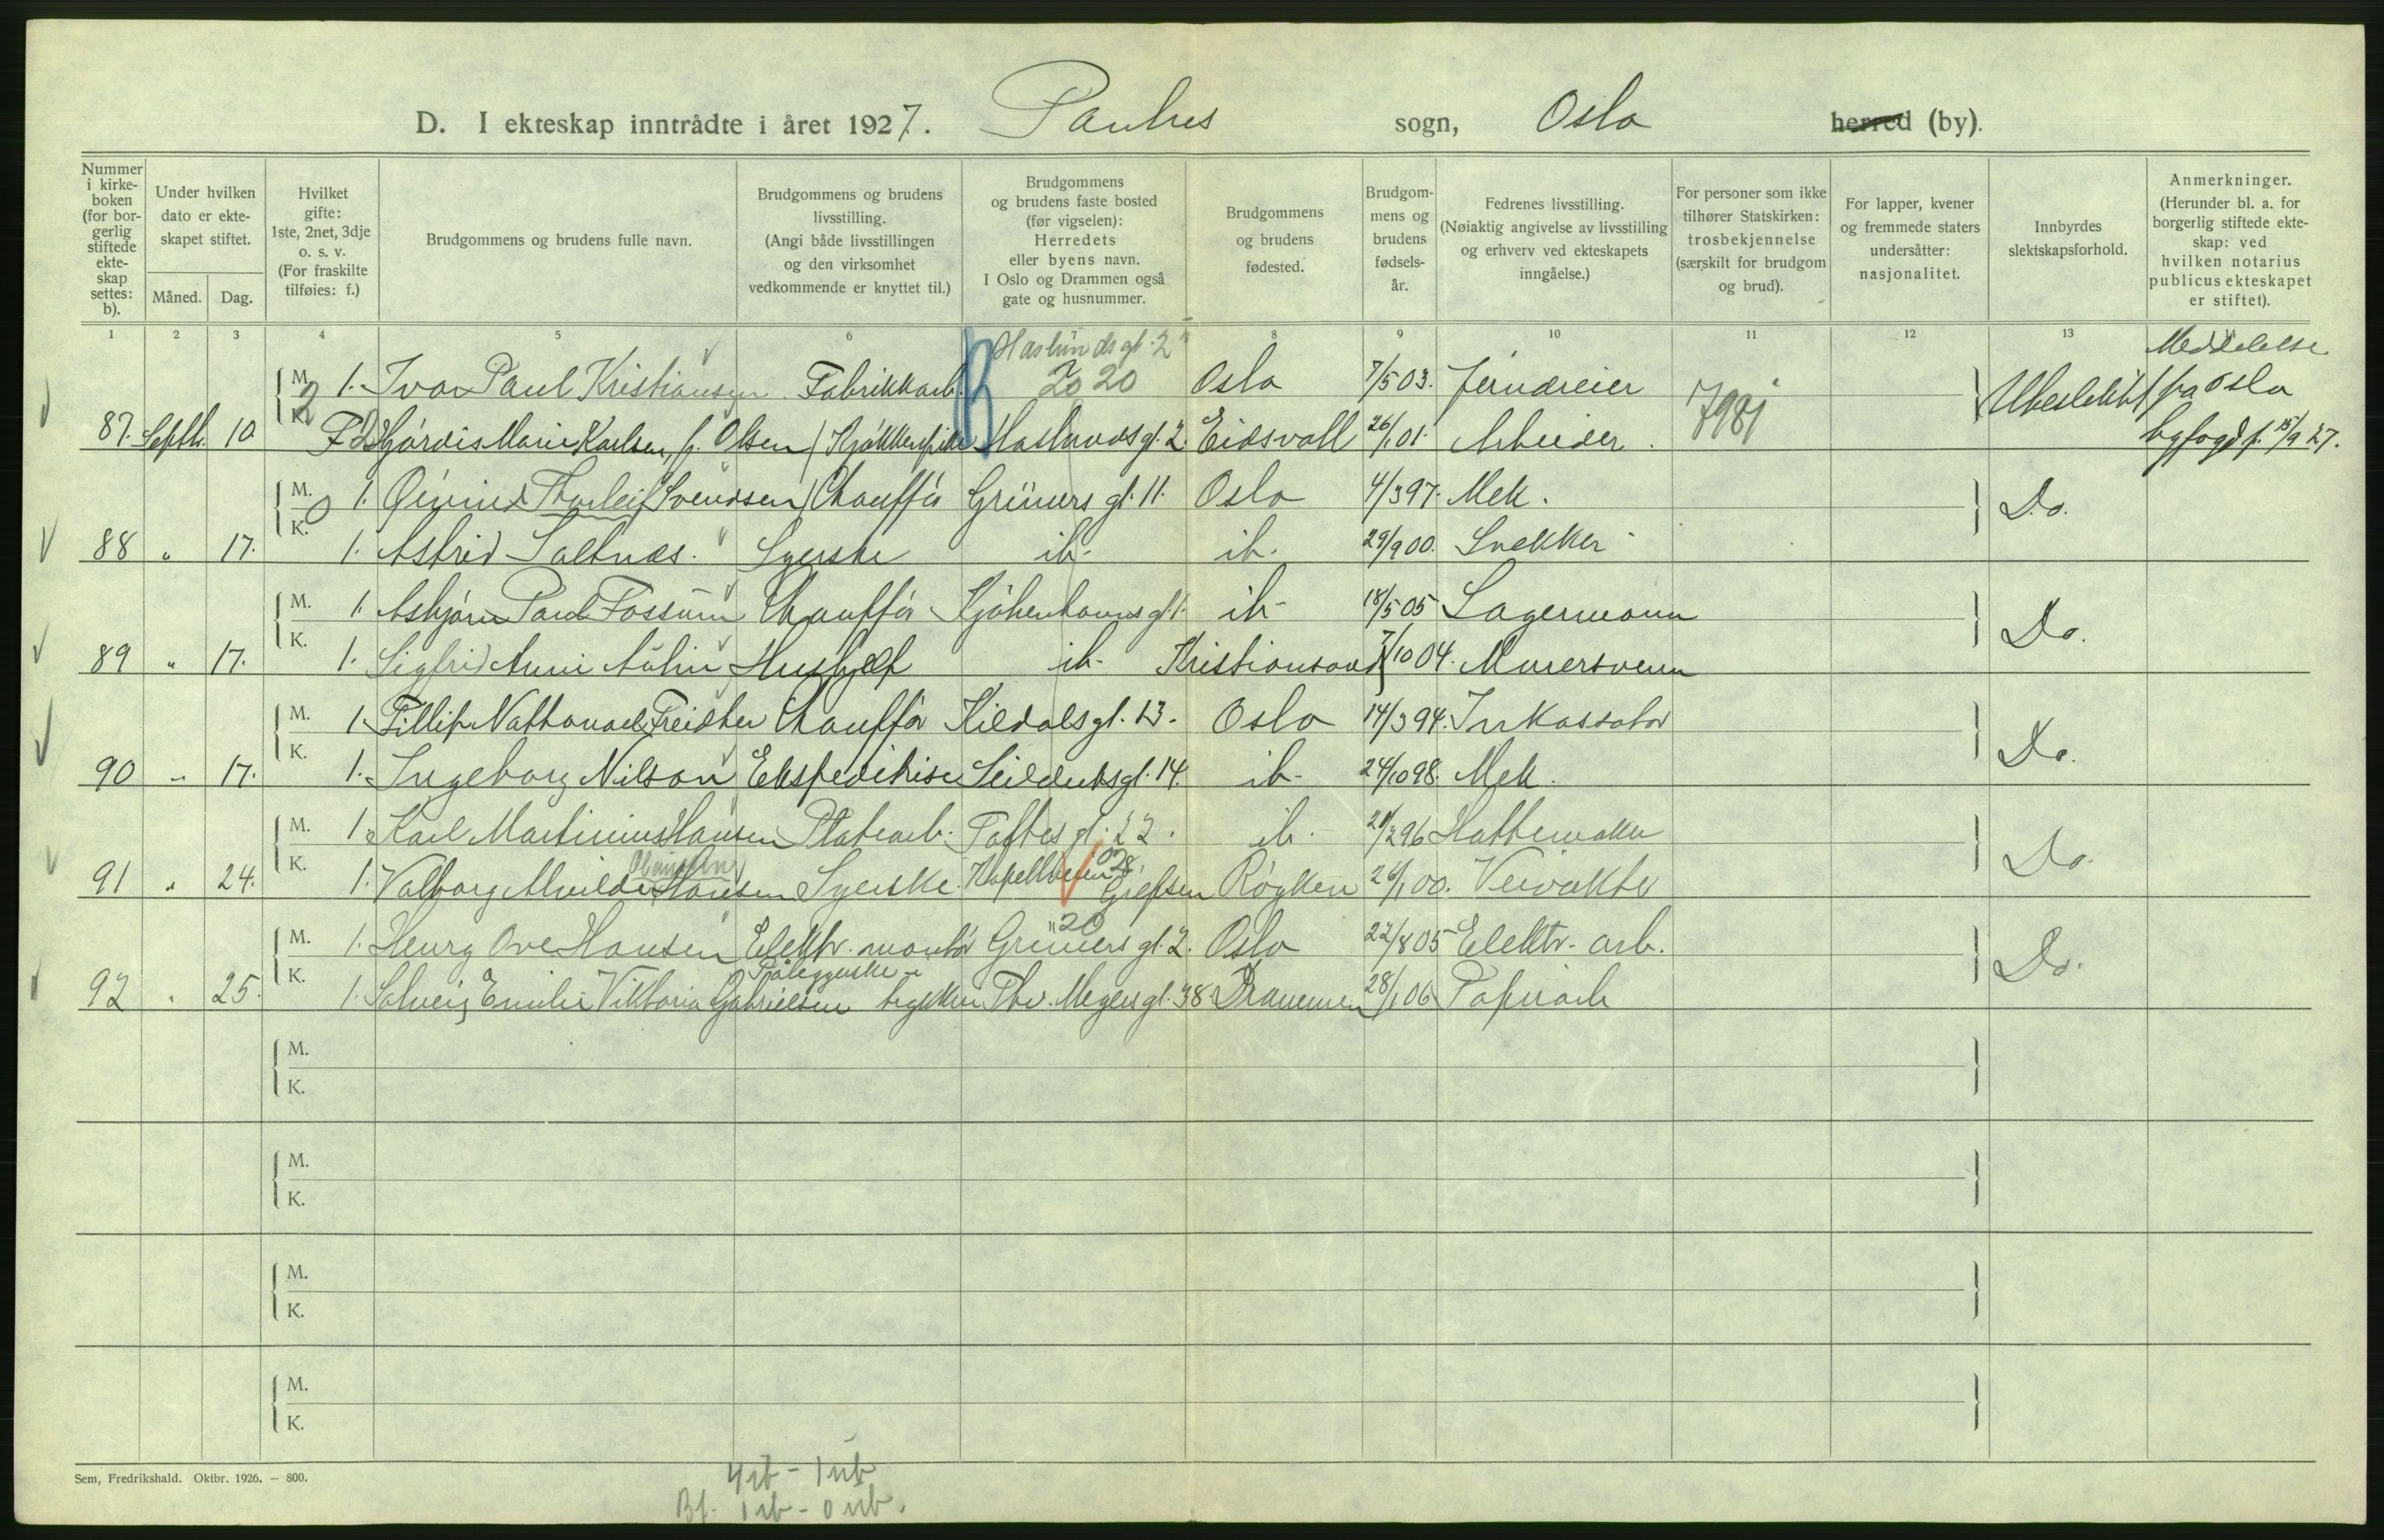 D. I ekteskap inntrådte i året 1927. Paulus sogn, Oslo herred (by).
Nummer i kirkeboken (for borgerlig stiftede ekteskap settes: b).
Under hvilken dato er ekteskapet stiftet.
Måned. Dag.
Hvilket gifte: 1ste, 2net, 3dje o. s. v. (For fraskilte tilføies: f.)
Brudgommens og brudens fulle navn.
Brudgommens og brudens livsstilling. (Angi både livsstillingen og den virksomhet vedkommende er knyttet til.)
Brudgommens og brudens faste bosted (før vigselen): Herredets eller byens navn. I Oslo og Drammen også gate og husnummer.
Brudgommens og brudens fødested.
Brudgommens og brudens fødselsår.
Fedrenes livsstilling. (Nøiaktig angivelse av livsstilling og erhverv ved ekteskapets inngåelse.)
For personer som ikke tilhører Statskirken: trosbekjennelse (særskilt for brudgom og brud).
For lapper, kvener og fremmede staters undersåtter: nasjonalitet.
Innbyrdes slektskapsforhold.
Anmerkninger. (Herunder bl. a. for borgerlig stiftede ekteskap: ved hvilken notarius publicus ekteskapet er stiftet).
1 2 3 4 5 6 7 8 9 10 11 12 13
Haslunds gt. 2
M. 1. Ivar Paul Kristiansen Fabrikkarb. 20 Oslo 7/5 03. Jerndreier 7981 Ubeslektet Meddelelse fra Oslo
87. Septb. 10 K. F 2 Hjørdis Marie Karlsen, f. Olsen Kjøkkenpike Haslunds gt. 2. Eidsvoll 26/1 01. Arbeider. byfogd f. 15/9 27.
M. 1. Øivind Thorleif Svendsen Chauffør Grüners gt. 11. Oslo 4/3 97. Mek. Do.
88 " 17. K. 1. Astrid Saltnæs. Syerske ib. ib. 29/9 00. Snekker
M. 1. Asbjørn Paul Fossum Chauffør Kjøbenhavns gt. 1. ib. 18/5 05 Lagermann Do.
89 " 17. K. 1. Sigfrid Anni Aulin Hushjelp ib. Kristiansand 7/10 04. Murersvenn
M. 1. Fillip Nathanael Freidher Chauffør Kildals gt. 13. Oslo 14/3 94. Inkassator Do.
90 " 17. K. 1. Ingeborg Nilson Ekspeditrise Seilduks gt. 14. ib. 24/10 98. Mek.
M. 1. Karl Martinius Hansen Platearb. Toftes gt. 22. ib. 21/2 96 Hattemaker Do.
91 " 24. K. 1. Valborg Alvilde Hansen Syerske. Kapellveien 28 Grefsen Røyken 26/1 00. Veivokter
M. 1. Henry Ove Hansen Elektr. montør Grüners gt. 2. 20 Oslo 22/8 05 Elektr. arb. Do.
92 " 25. K. 1. Solveig Emilie Viktoria Gabrielsen Påleggerske trykkeri Thv. Meyers gt. 38 Drammen 28/1 06 Papirarb
M.
K.
M.
K.
M.
K.
M.
K.
Sem, Fredrikshald. Oktbr. 1926. — 800.
4 ib - 1 ub
Bf. 1 ib - 0 ub.